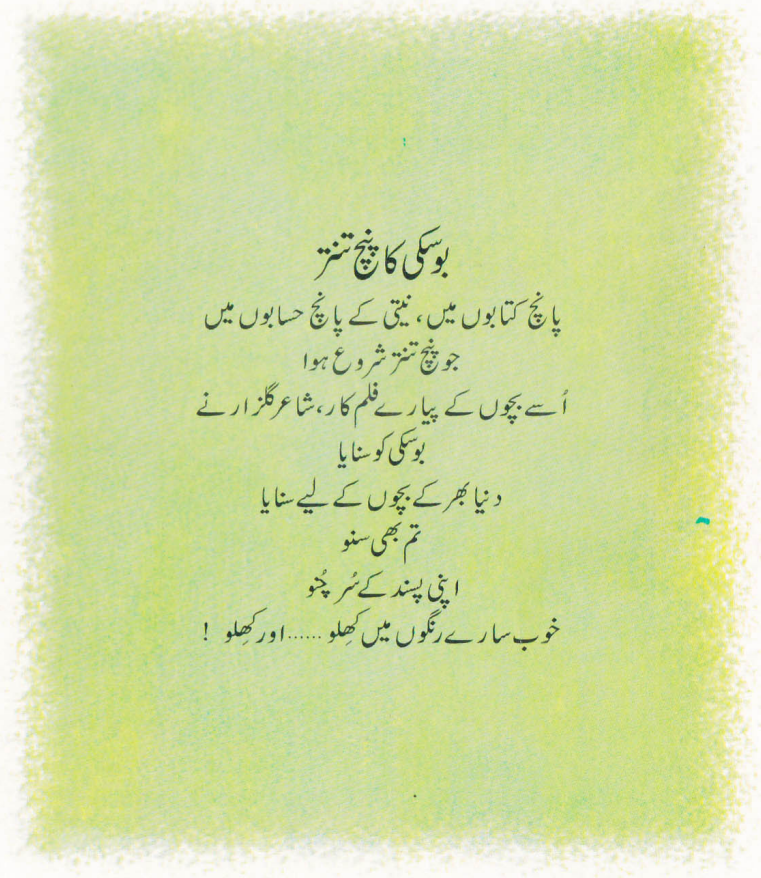 بوسکی کا پنچ تنتر
پانچ کتابوں میں، نیتی کے پانچ حسابوں میں
جو پنچ تنتر شروع ہوا
اُسے بچوں کے پیارے فلم کار، شاعر گلزار نے
بوسکی کو سنایا
دنیا بھر کے بچوں کے لیے سنایا
تم بھی سنو
اپنی پسند کے سُر چُنو
خوب سارے رنگوں میں کھِلو ...... اور کھِلو !